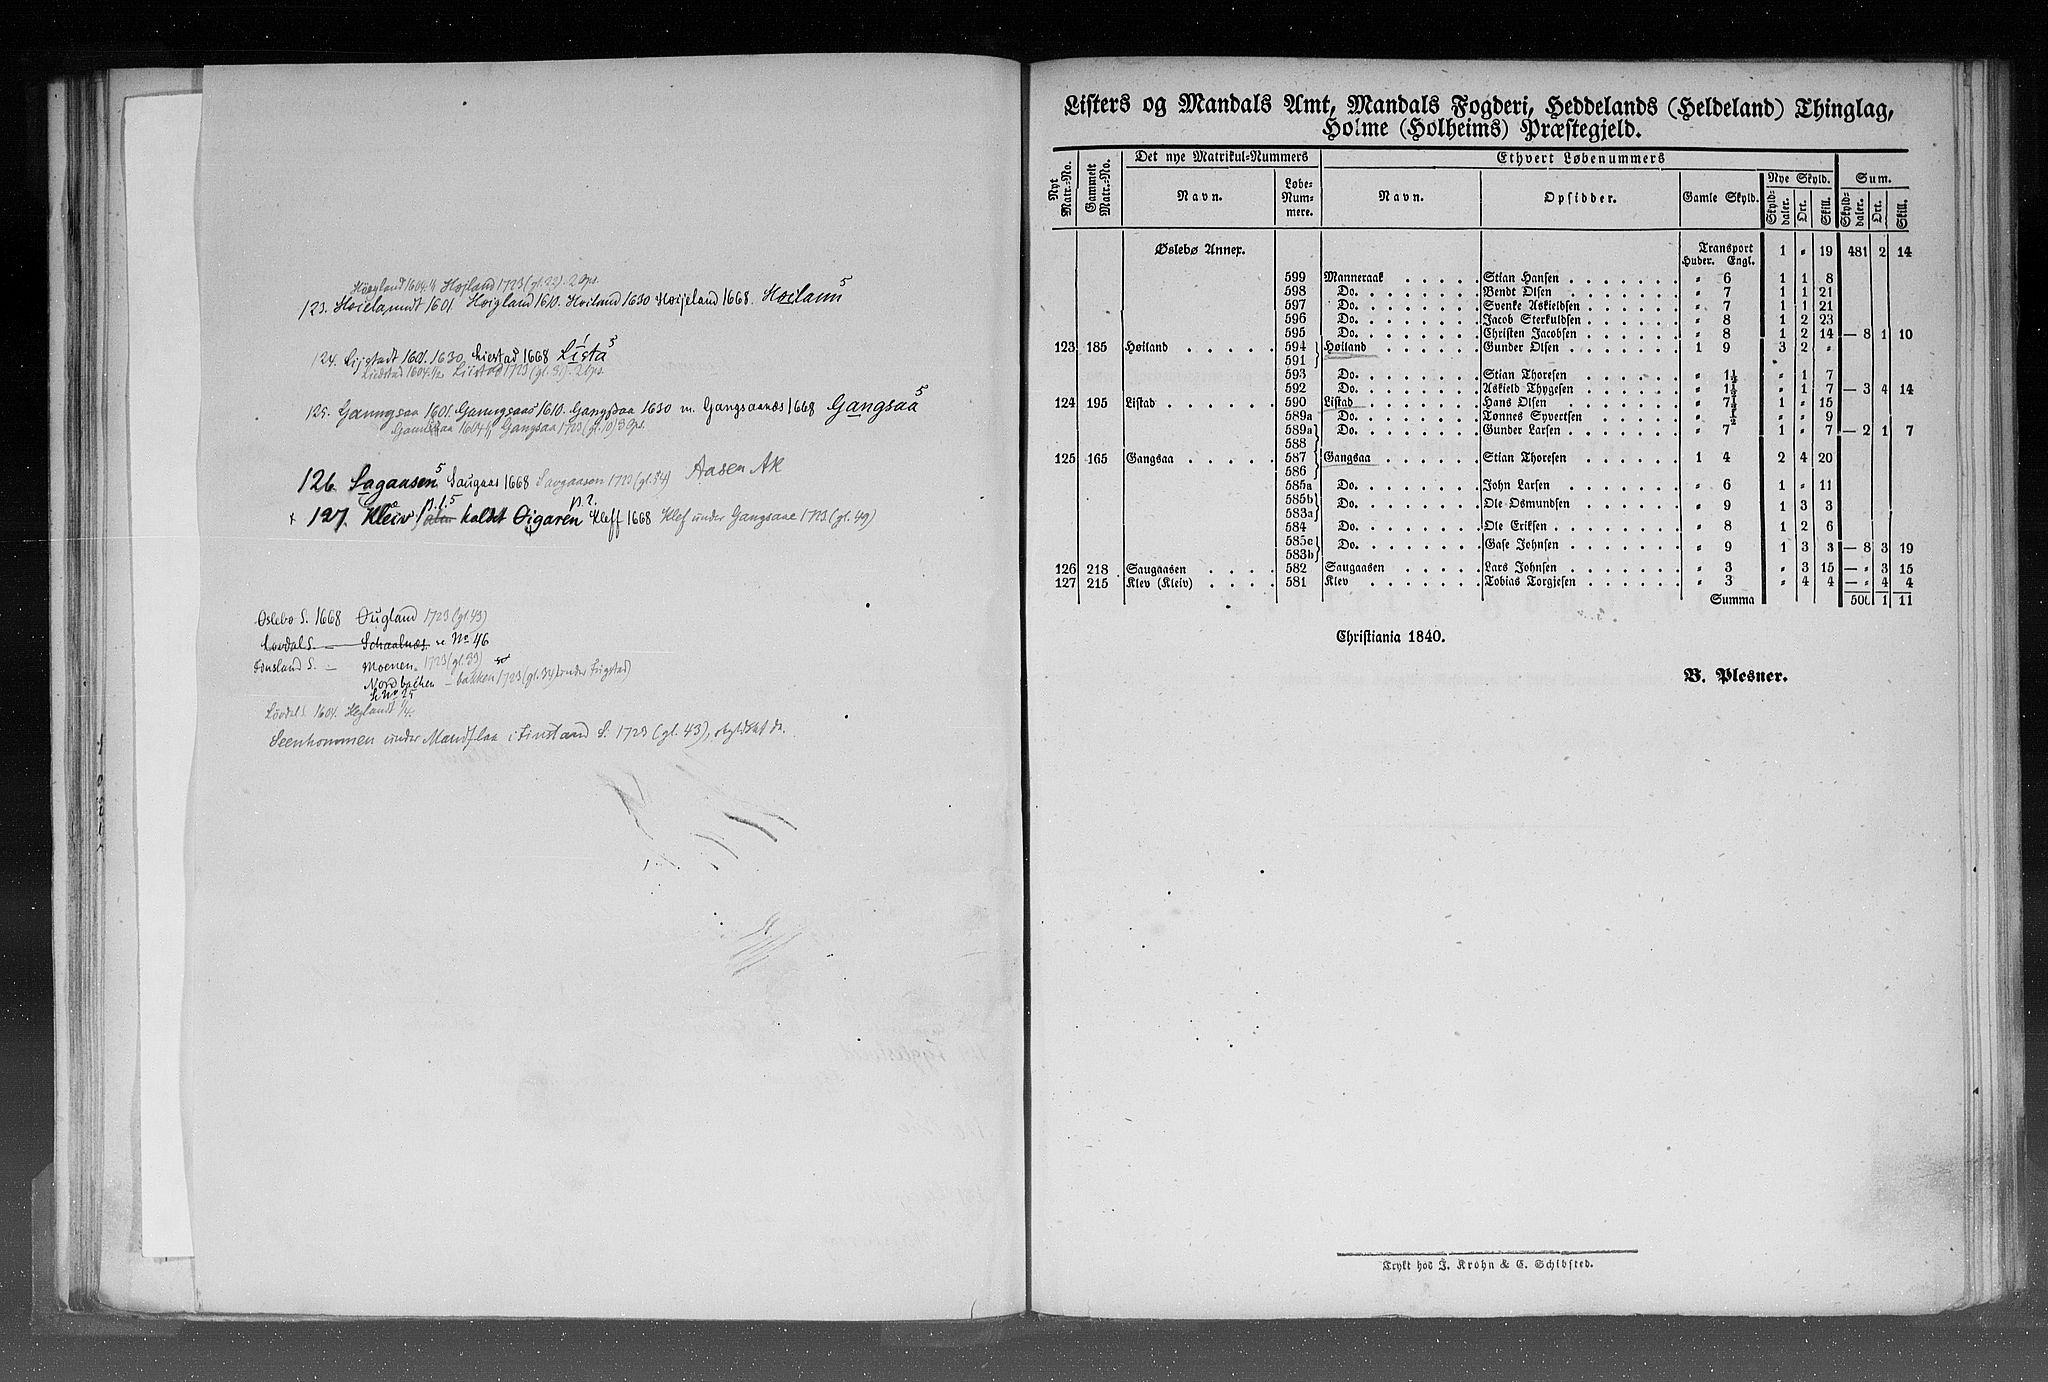 Høegland 1604. ½ Højland 1723 (gl. 22). 2 Gps.
123. Høielanndt 1601. Høigland 1610. Høiland 1630 Høijeland 1668. Høilann 5
124. Lijstadt 1601. 1630. Liestad 1668 Lista 5
Liidstad 1604. ½ Liistad 1723 (gl. 31). 2 Gps.
125. Ganngsaa 1601. Ganngsaas 1610. Gangsaa 1630 m. Gangsaanæs 1668 Gangsaa 5
Gangsaa 1723 (gl. 10) 3 Gps.
126. Sagaasen 5 Saugaas 1668 Savgaasen 1723 (gl. 54) Aasen AK
+ 127. Kleiv kaldt Øigaren Kleff 1668 Klef under Gangsaae 1723 (gl. 49)
Øslebø S. 1668 Øugland 1723 (gl. 43)
Løvdal S. — Schaalnæs se No. 46
Finsland S. — Moenen 1723 (gl. 39)
Mordbachen — bakken 1723 (gl. 34) (under Lugstad)
Se No 25
Løvdal S. 1604. Heglandt ¼.
Steenhommen under Mandflaa i Finsland S. 1723 (gl. 43), skyldsat da.
Listers og Mandals Amt, Mandals Fogderi, Heddelands (Heldeland) Thinglag,
Holme (Holheims) Præstegjeld.
Nyt Matr.-No. Gammelt Matr.-No. Det nye Matrikul-Nummers Ethvert Løbenummers
Navn. Løbe-Nummere. Navn. Opsidder. Gamle Skyld. Nye Skyld. Sum.
Skyld-daler. Ort. Skill. Skyld-daler. Ort. Skill.
Øslebø Annex. Transport 1 " 19 481 2 14
Huder. Engl.
599 Manneraak Stian Hansen " 6 1 1 8
598 Do. Bendt Olsen " 7 1 1 21
597 Do. Svenke Askieldsen " 7 1 1 21
596 Do. Jacob Sterkuldsen " 8 1 2 23
595 Do. Christen Jacobsen " 8 1 2 14 — 8 1 10
123 185 Høiland 594 Høiland Gunder Olsen 1 9 3 2 "
591
593 Do. Stian Thoresen " 1½ " 1 7
592 Do. Askield Thygesen " 1½ " 1 7 — 3 4 14
124 195 Listad 590 Listad Hans Olsen " 7½ 1 " 15
589a Do. Tønnes Syvertsen " ½ " " 9
589a Do. Gunder Larsen " 7 1 " 7 — 2 1 7
588
125 165 Gangsaa 587 Gangsaa Stian Thoresen 1 4 2 4 20
586
585a Do. John Larsen " 6 1 " 11
585b Do. Ole Osmundsen " 9 1 3 3
583a
584 Do. Ole Eriksen " 8 1 2 6
585c Do. Gase Johnsen " 9 1 3 3 — 8 3 19
583b
126 218 Saugaasen 582 Saugaasen Lars Johnsen " 3 " 3 15 — " 3 15
127 215 Klev (Kleiv) 581 Klev Tobias Torgjesen " 3 " 4 4 — " 4 4
Summa 500 1 11
Christiania 1840.
B. Plesner.
Trykt hos J. Krohn & C. Schibsted.